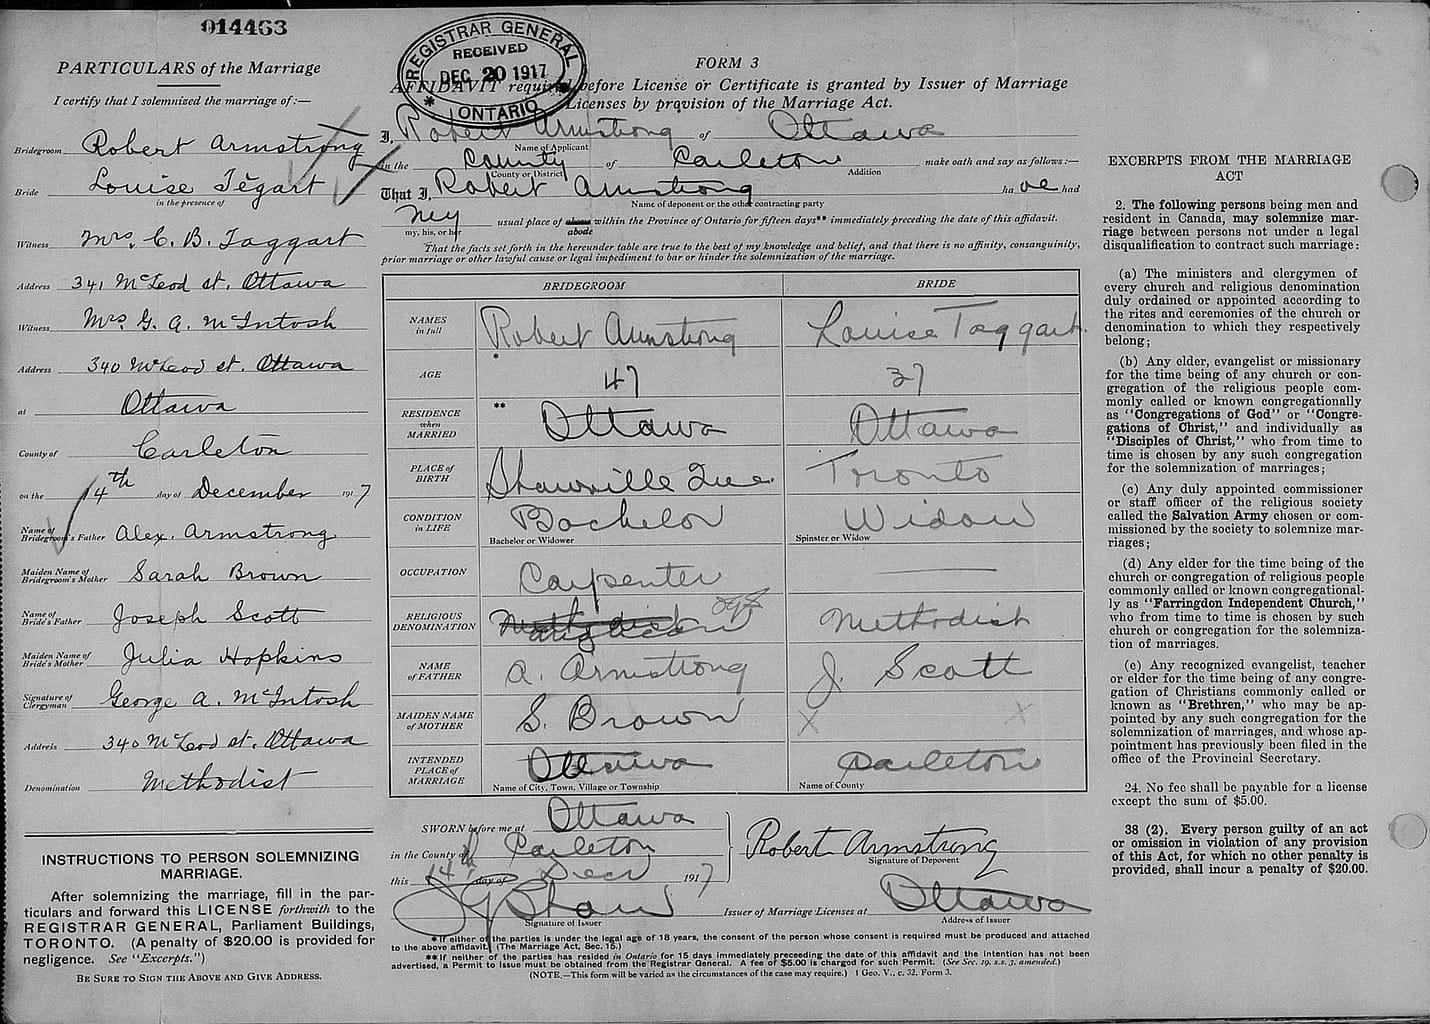 014463
PARTICULARS of the Marriage
I certify that I solemnized the marriage of:—
Bridegroom Robert Armstrong
Bride Louise Tegart
in the presence of
Witness Mrs. C. B. Taggart
Address 341 McLeod st. Ottawa
Witness Mrs. G. A. McIntosh
Address 340 McLeod st. Ottawa
at Ottawa
County of Carleton
on the 14th day of December 1917
Name of Bridegroom's Father Alex. Armstrong
Maiden Name of Bridegroom's Mother Sarah Brown
Name of Bride's Father Joseph Scott
Maiden Name of Bride's Mother Julia Hopkins
Signature of Clergyman George A. McIntosh
Address 340 McLeod st. Ottawa
Denomination Methodist
INSTRUCTIONS TO PERSON SOLEMNIZING
MARRIAGE.
After solemnizing the marriage, fill in the par-
ticulars and forward this LICENSE forthwith to the
REGISTRAR GENERAL, Parliament Buildings,
TORONTO. (A penalty of $20.00 is provided for
negligence. See "Excerpts.")
BE SURE TO SIGN THE ABOVE AND GIVE ADDRESS.
REGISTRAR GENERAL
RECEIVED
DEC 20 1917
* ONTARIO *
FORM 3
AFFIDAVIT required before License or Certificate is granted by Issuer of Marriage
Licenses by provision of the Marriage Act.
I, Robert Armstrong of Ottawa
Name of Applicant
in the County of Carleton make oath and say as follows:—
County or District Addition
That I, Robert Armstrong ha ve had
Name of deponent or the other contracting party
my usual place of abode within the Province of Ontario for fifteen days** immediately preceding the date of this affidavit.
my, his, or her abode
That the facts set forth in the hereunder table are true to the best of my knowledge and belief, and that there is no affinity, consanguinity,
prior marriage or other lawful cause or legal impediment to bar or hinder the solemnization of the marriage.
BRIDEGROOM BRIDE
NAMES in full Robert Armstrong Louise Taggart
AGE * 47 37
RESIDENCE when MARRIED ** Ottawa Ottawa
PLACE of BIRTH Shawville Que. Toronto
CONDITION in LIFE Bachelor Widow
Bachelor or Widower Spinster or Widow
OCCUPATION Carpenter
RELIGIOUS DENOMINATION Methodist Anglican Methodist
NAME of FATHER A. Armstrong J. Scott
MAIDEN NAME of MOTHER S. Brown X X
INTENDED PLACE of MARRIAGE Ottawa Carleton
Name of City, Town, Village or Township Name of County
SWORN before me at Ottawa
in the County of Carleton
this 14th day of Decr 1917
Robert Armstrong
Signature of Deponent
Signature of Issuer
Issuer of Marriage Licenses at Ottawa
Address of Issuer
* If either of the parties is under the legal age of 18 years, the consent of the person whose consent is required must be produced and attached
to the above affidavit. (The Marriage Act, Sec. 15.)
** If neither of the parties has resided in Ontario for 15 days immediately preceeding the date of this affidavit and the intention has not been
advertised, a Permit to issue must be obtained from the Registrar General. A fee of $5.00 is charged for such Permit. (See Sec. 19, s.s. 3, amended.)
(NOTE.—This form will be varied as the circumstances of the case may require.) 1 Geo. V., c. 32, Form 3.
EXCERPTS FROM THE MARRIAGE
ACT
2. The following persons being men and
resident in Canada, may solemnize mar-
riage between persons not under a legal
disqualification to contract such marriage:
(a) The ministers and clergymen of
every church and religious denomination
duly ordained or appointed according to
the rites and ceremonies of the church or
denomination to which they respectively
belong;
(b) Any elder, evangelist or missionary
for the time being of any church or con-
gregation of the religious people com-
monly called or known congregationally
as "Congregations of God" or "Congre-
gations of Christ," and individually as
"Disciples of Christ," who from time to
time is chosen by any such congregation
for the solemnization of marriages;
(c) Any duly appointed commissioner
or staff officer of the religious society
called the Salvation Army chosen or com-
missioned by the society to solemnize mar-
riages;
(d) Any elder for the time being of the
church or congregation of religious people
commonly called or known congregational-
ly as "Farringdon Independent Church,"
who from time to time is chosen by such
church or congregation for the solemniza-
tion of marriages.
(e) Any recognized evangelist, teacher
or elder for the time being of any congre-
gation of Christians commonly called or
known as "Brethren," who may be ap-
pointed by any such congregation for the
solemnization of marriages, and whose ap-
pointment has previously been filed in the
office of the Provincial Secretary.
24. No fee shall be payable for a license
except the sum of $5.00.
38 (2). Every person guilty of an act
or omission in violation of any provision
of this Act, for which no other penalty is
provided, shall incur a penalty of $20.00.